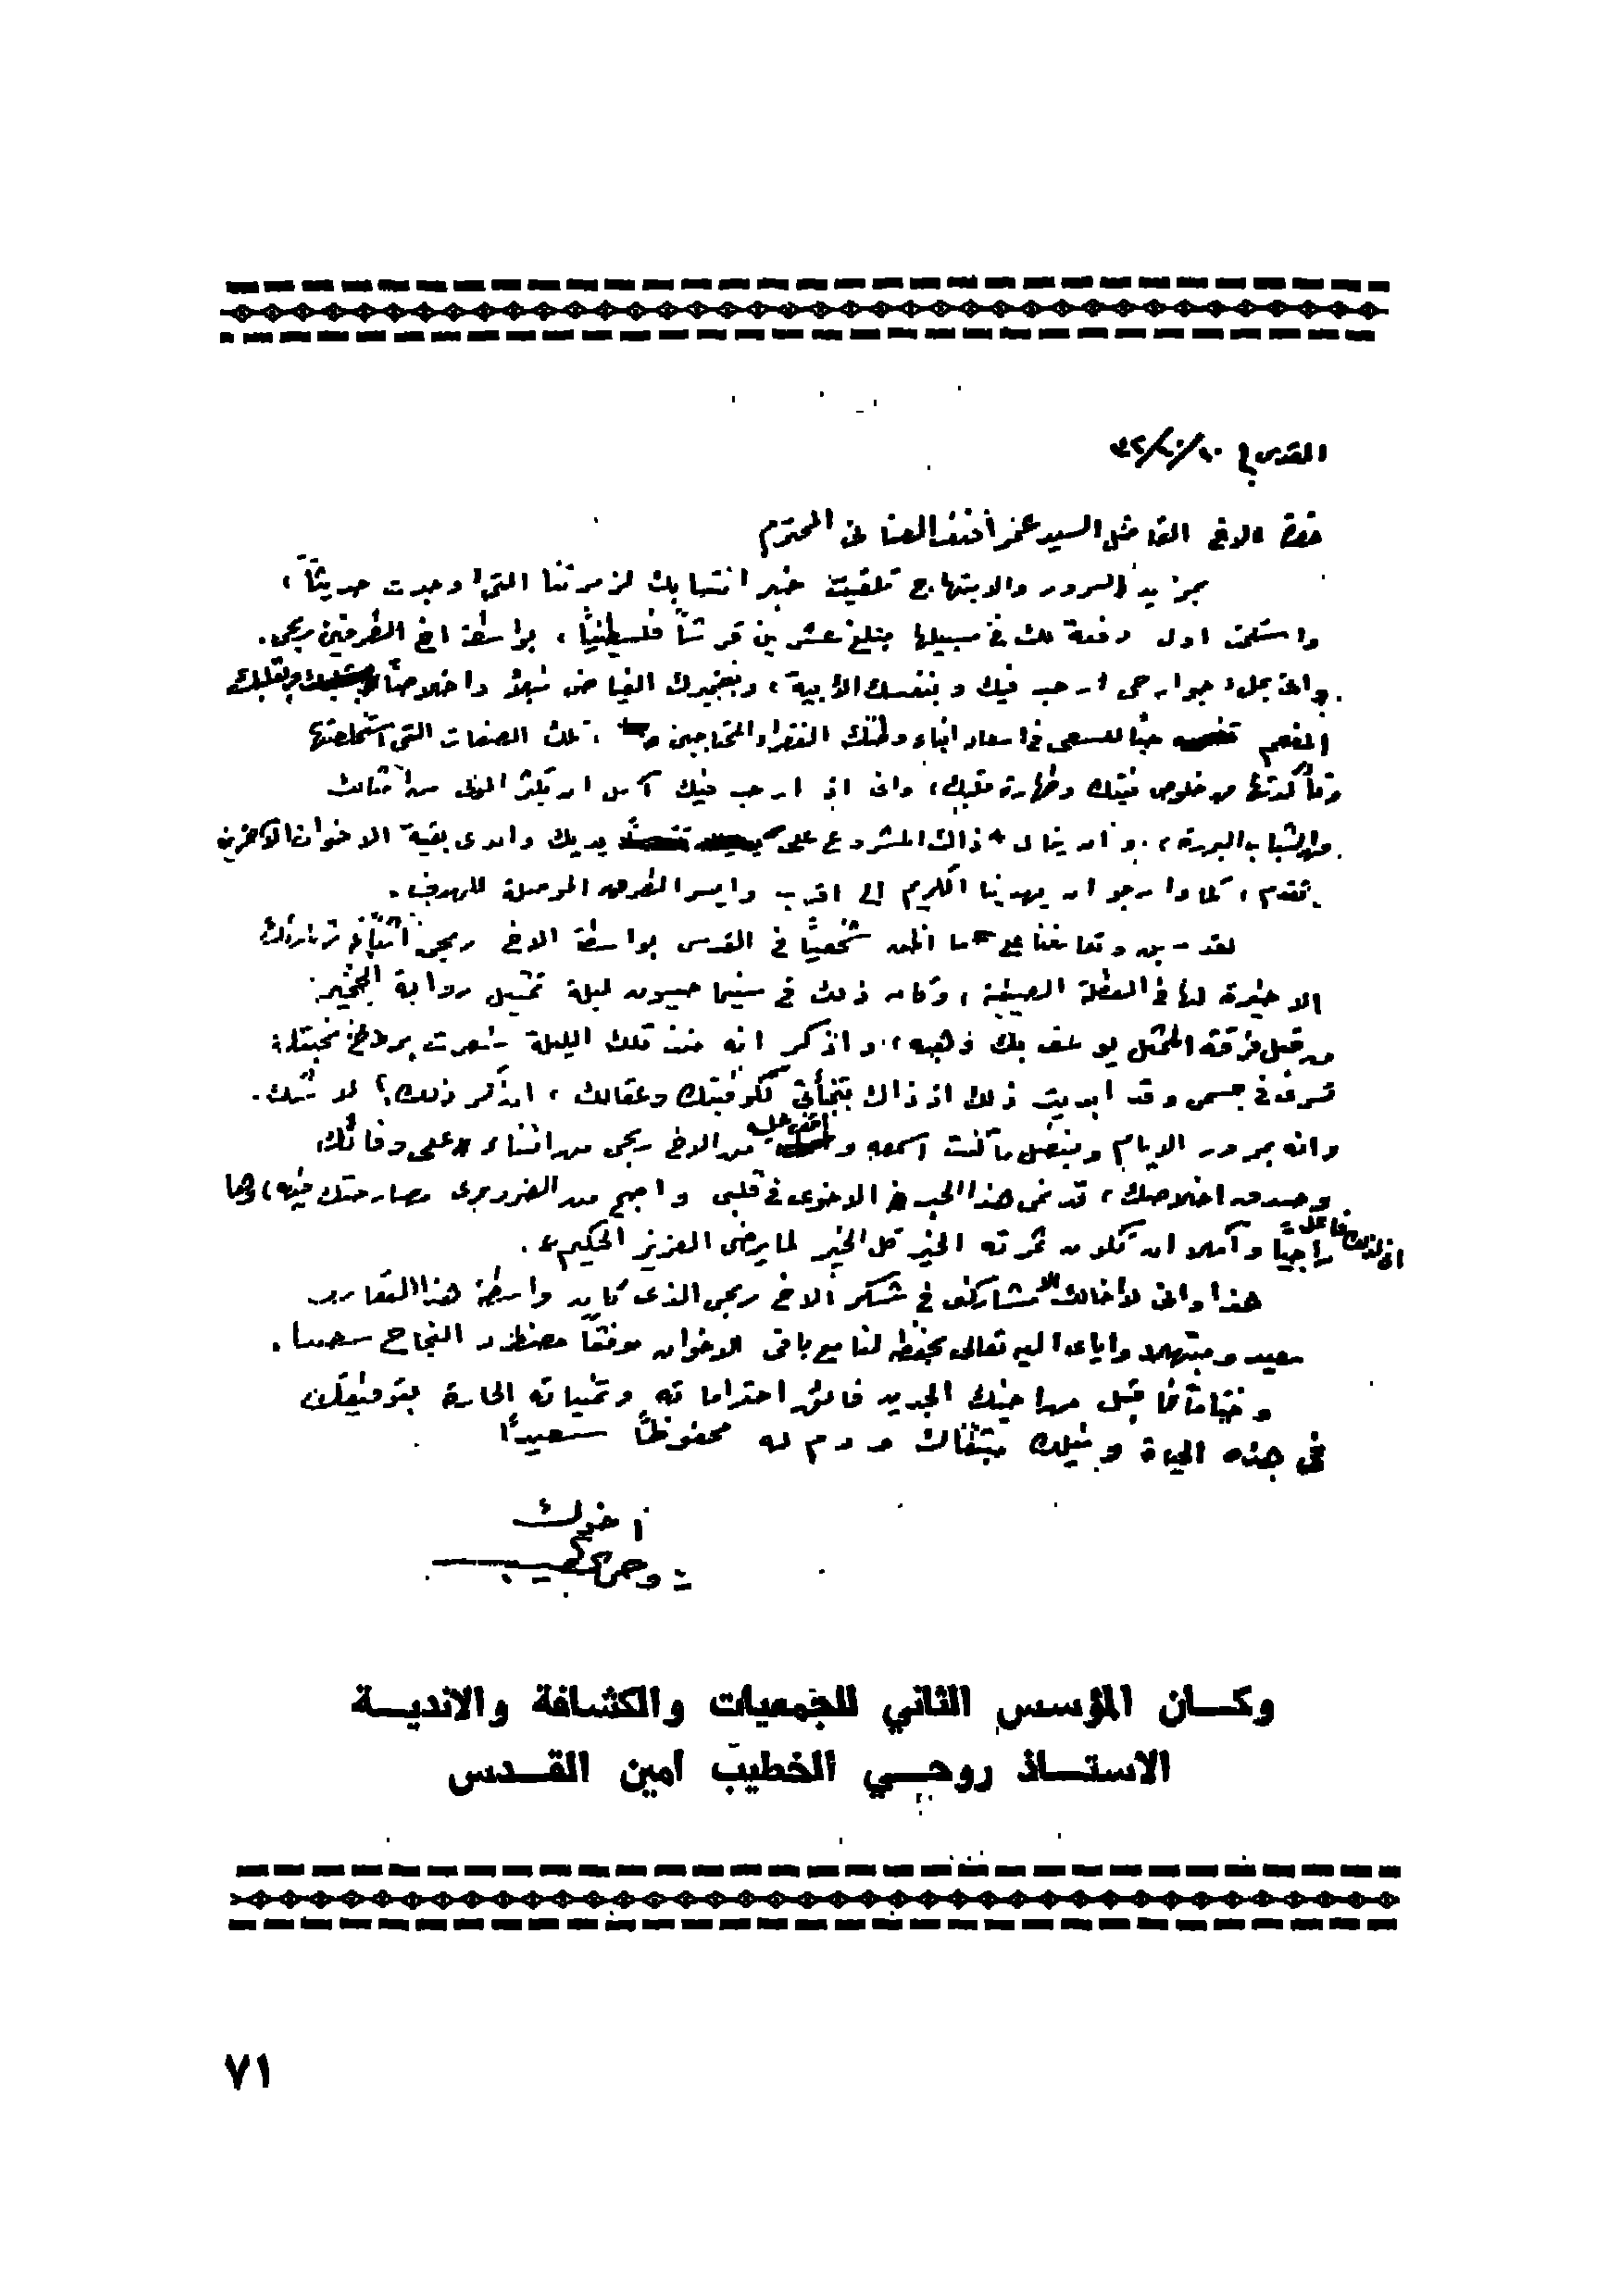 القدس في
حضرة الاخ الفاضل السيد عمر أفندي الصفافي المحترم
بمزيد السرور والابتهاج تلقيت خبر انتسابك لزمرتنا التي وجدت حديثاً،
واستلمت اول دفعة لك في سبيلها مبلغ عشرين قرشاً فلسطينياً، بواسطة اخ الطرفين ربحي.
واني بملء جوارحي ارحب فيك وبنفسك الأبية، وبضميرك الفياض نبلاً واخلاصاً وبقلبك
المفعم حباً للسعي في اسعاد ابناء وطنك الفقراء والمحتاجين، تلك الصفات التي استخلصتها
وتأكدتها من خلوص نيتك وطهارة قلبك، واني اذ ارحب فيك آمل ان يكثر المولى من امثالك
من الشباب البررة، وان ينال ذاك المشروع على يديك وايدي بقية الاخوان الآخرين
تقدم، كما وارجو ان يهدينا الكريم الى اقرب وايسر الطرق الموصلة للهدف.
لقد سبق وتعارفنا على ما اظن شخصياً في القدس بواسطة الاخ ربحي اثناء زيارتك
الاخيرة لها في العطلة الصيفية، وكان ذلك في سينما صهيون ليلة تمثيل رواية
من قبل فرقة الممثل يوسف بك وهبه، واذكر انه منذ تلك الليلة شعرت
تسري في جسمي وقد ابديت ذلك اذ ذاك لكوفيتك وعقالك، اتذكر ذلك؟ لا شك.
وانه بمرور الايام وبفضل ما كنت اسمعه و من الاخ ربحي من اثناء على وفائك
وصدق اخلاصك، قد نمى هذا الحب الاخوي في قلبي واصبح من الضروري مصارحتك فيه، وها
اني لذلك فاعل راجياً وآملا ان تكون ثمرته الخير كل الخير لما يرضى العزيز الحكيم.
هذا واني لا أخالك الا مشاركني في شكر الاخ ربحي الذي كان واسطة هذا التعارف
ومبتهلا واياي اليه تعالى يحفظه لنا مع باقي الاخوان موفقاً النجاح
وختاماً فاقبل من اخيك الجديد فائق احتراماته وتمنياته الحارة بتوفيقك
في هذه الحياة ونيلك مبتغاك ودم له محفوظاً سعيداً
أخوك
روحي الخطيب
وكــان المؤسس الثاني للجمعيات والكشافة والانديــة
الاستــاذ روحــي الخطيب امين القــدس
٧١